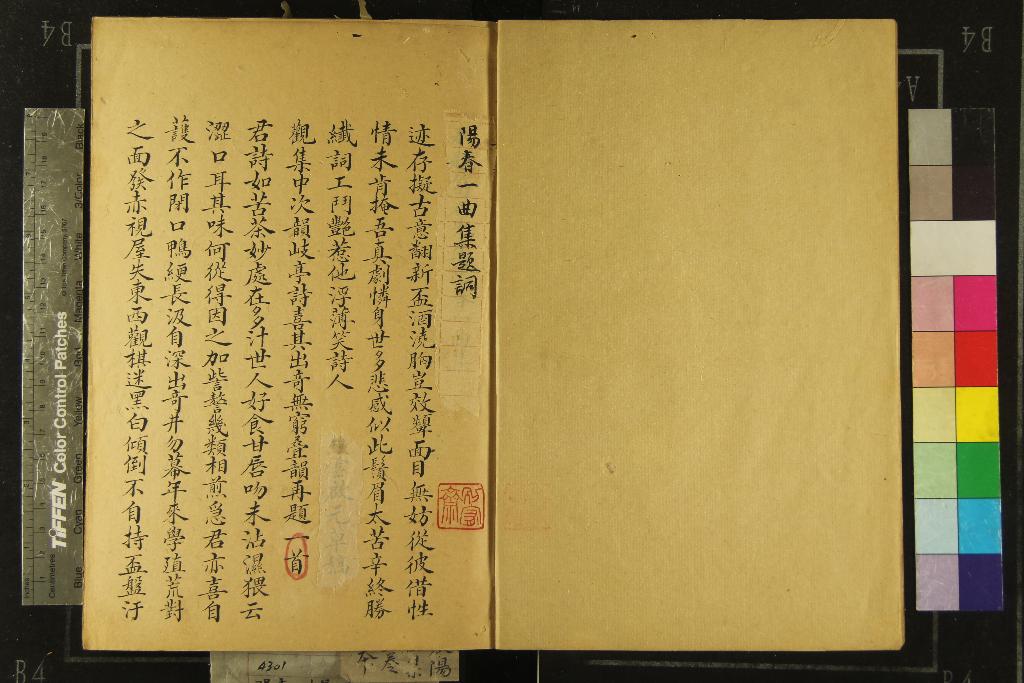 陽春一曲集題詞
迹存擬古意翻新盃酒澆胸豈效顰面目無妨從彼借性
情未肯掩吾真劇憐身世多悲感似此鬚眉太苦辛終勝
纖詞工鬥艷惹他浮薄笑詩人
觀集中次韻岐亭詩喜其出奇無窮叠韻再題一首
君詩如苦茶妙處在多汁世人好食甘唇吻未沾濕猥云
澀口耳其味何從得因之加訾謷幾類相煎急君亦喜自
護不作閉口鴨綆長汲自深出奇井勿幕年來學殖荒對
之面發赤視屋失東西觀棋迷黑白傾倒不自持盃盤汙
B4
B4
A4
B4
B4
TIFFEN Color Control Patches
© The Tiffen Company, 2007
Inches
Centimetres
Blue
Cyan
Green
Yellow
Red
Magenta
White
3/Color
Black
4301
陽